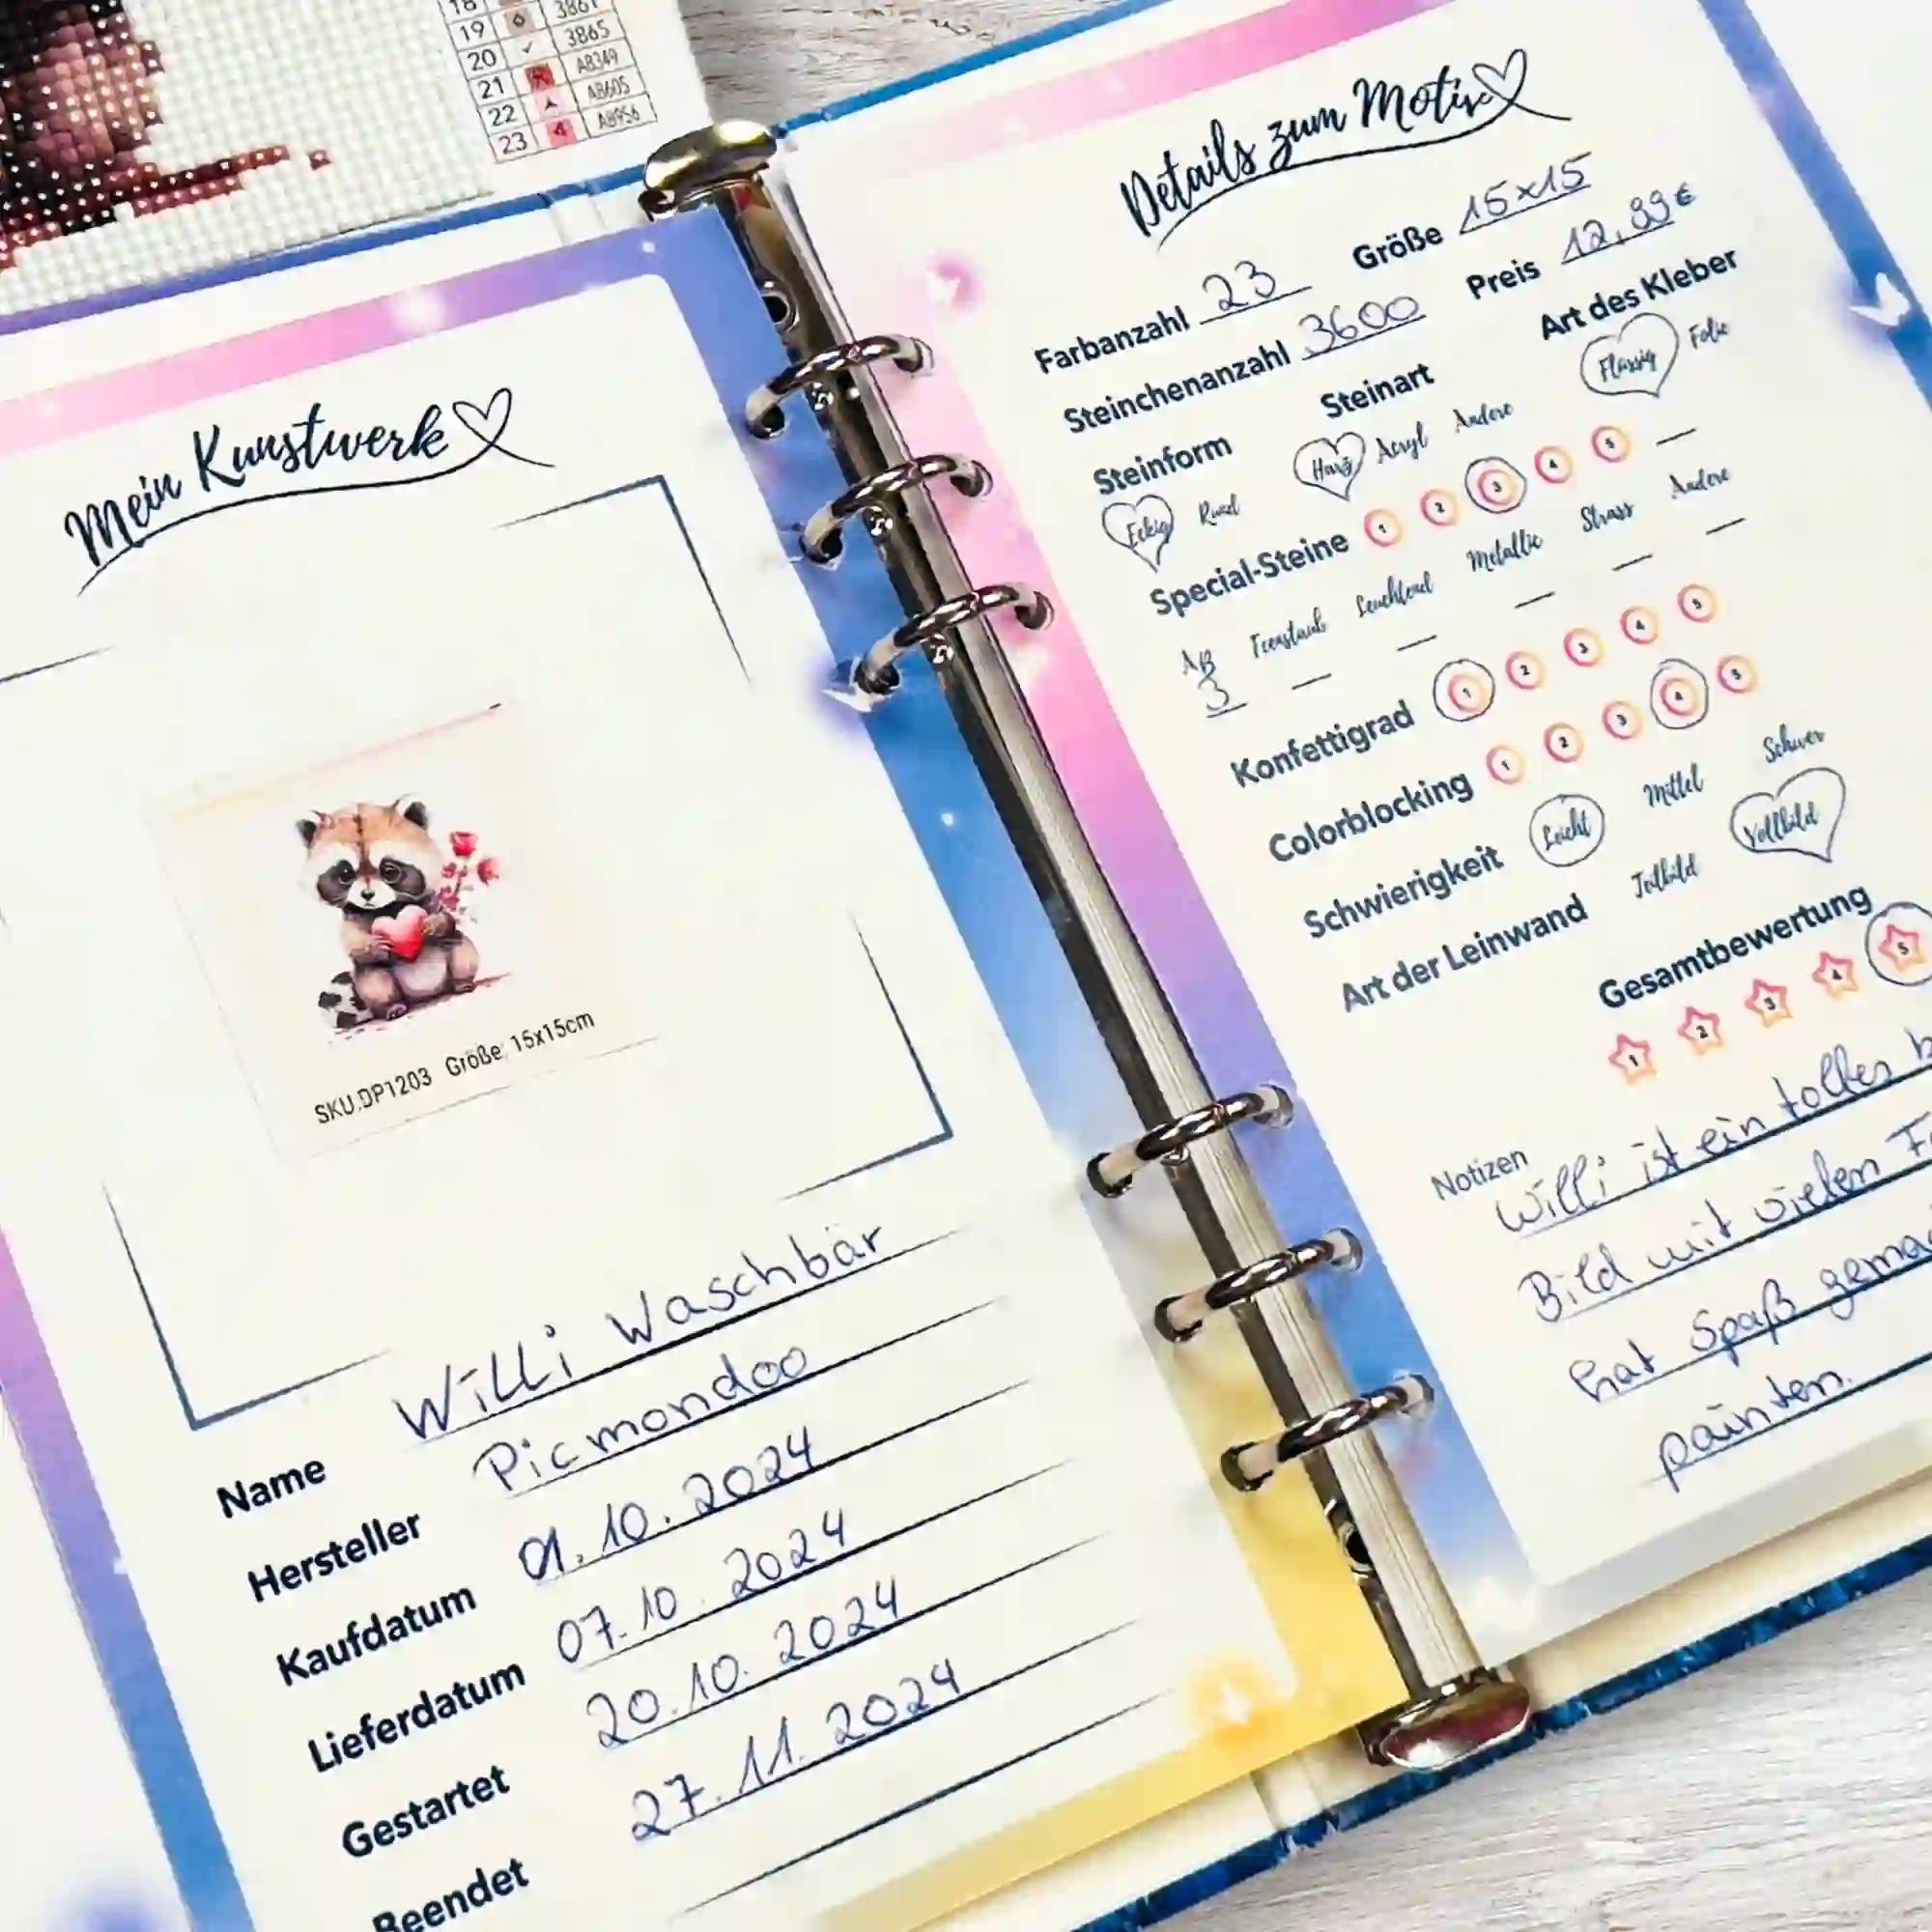 18 3861
19 3865
20 AB349
21 AB605
22 AB956
23
Mein Kunstwerk
SKU.DP1203 Größe: 15x15cm
Name Willi Waschbär
Hersteller Picmondoo
Kaufdatum 01.10.2024
Lieferdatum 07.10.2024
Gestartet 20.10.2024
Beendet 27.11.2024
Details zum Motiv
Farbanzahl 23 Größe 15x15
Steinchenanzahl 3600 Preis 12,99€
Steinform Steinart Art des Kleber
Eckig Rund Harz Acryl Andere Flüssig Folie
Special-Steine 1 2 3 4 5 —
AB Feenstaub Leuchtend Metallic Strass Andere
3 — — — — —
Konfettigrad 1 2 3 4 5
Colorblocking 1 2 3 4 5
Schwierigkeit Leicht Mittel Schwer
Art der Leinwand Teilbild Vollbild
Gesamtbewertung
1 2 3 4 5
Notizen Willi ist ein tolles
Bild mit vielen
hat Spaß
painten.